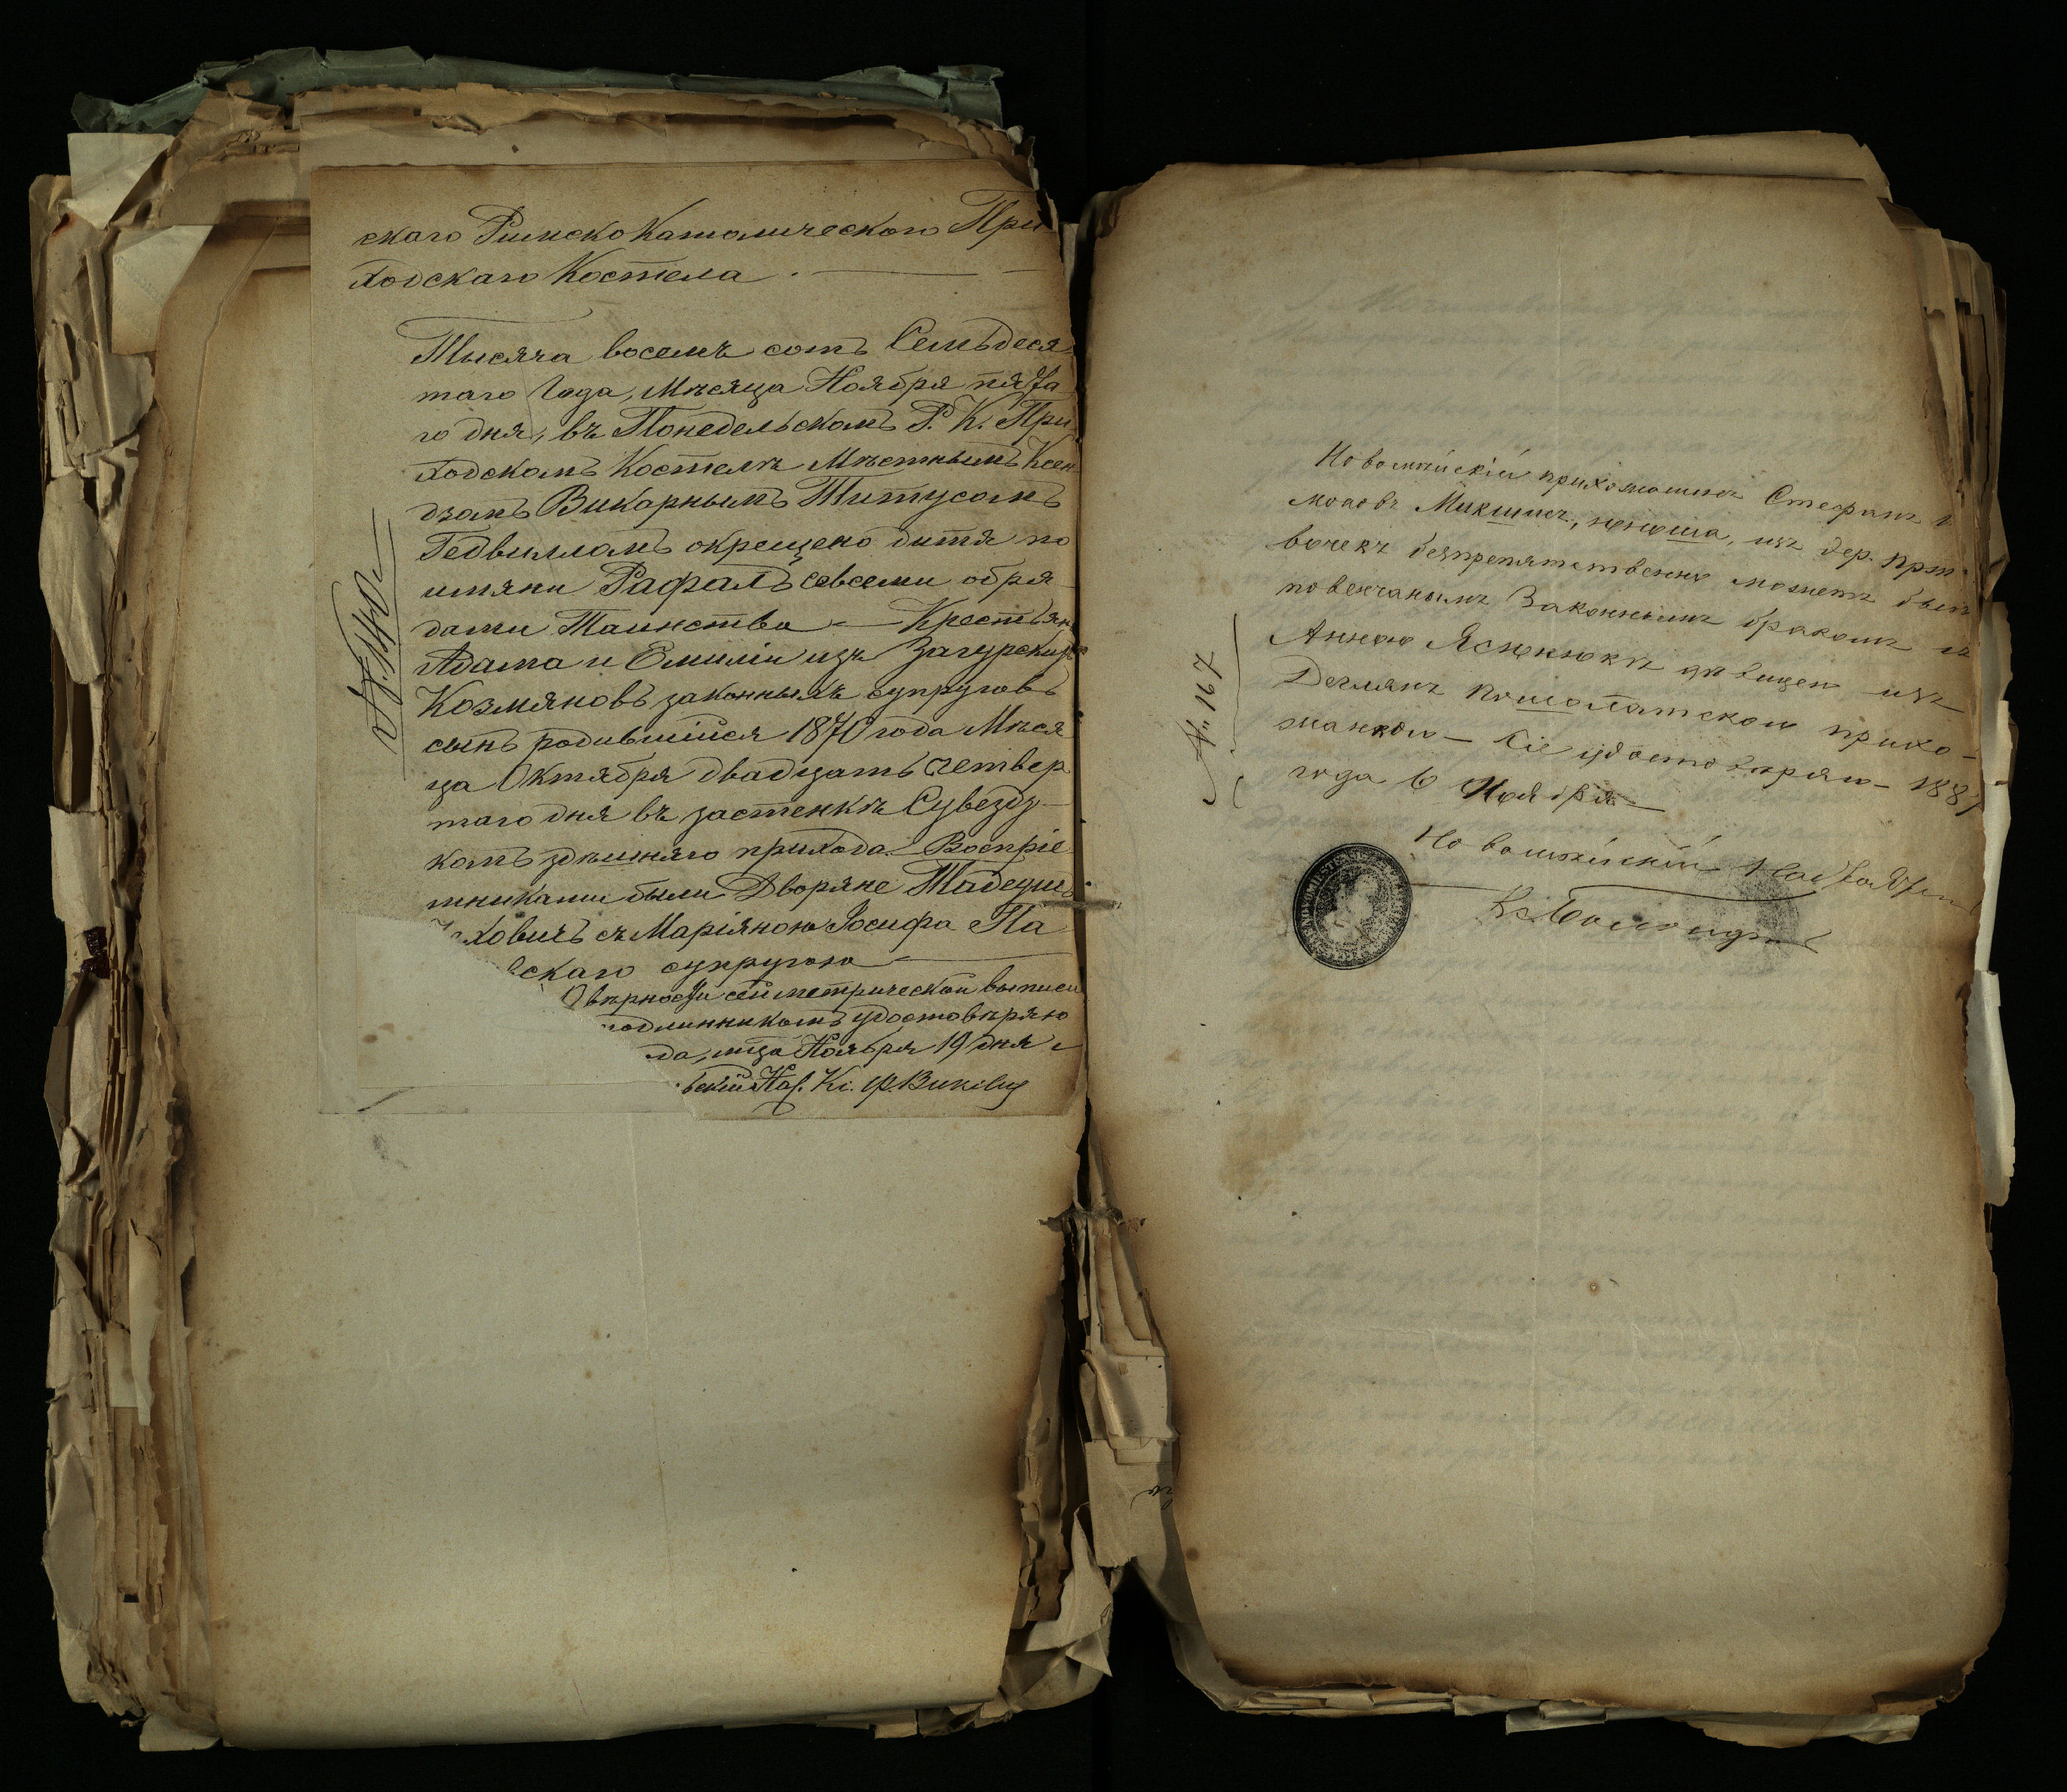 скаго Римско Католическаго При
ходскаго Костела
Тысяча восемъ сотъ Семьдеся
таго Года, Мѣсяца Ноября пята
го дня, въ Понедельскомъ Р. К. При
ходскомъ Костелѣ Мѣстнымъ Ксен
дзомъ Викарнымъ Титусомъ
Гедвилломъ окрещено дитя по
имяни Рафалъ совсеми обря
дами Таинства — Крестьянъ
Адама и Емиліи изъ Загурскихъ
Козмяновъ законныхъ супруговъ
сынъ родившійся 1870 года Мѣся
ца Октября двадцать четвер
таго дня въ застенкѣ Сувезду
комъ здѣшняго прихода. Воспріе
мниками были Дворяне Тадеушъ
ховичъ съ Маріяною Іосифа Па
вскаго супругою
О вѣрности сей метрической выписи
подлинникомъ удостовѣряю
да, мца Ноября 19 дня
№ 140
Новомѣйскій прихожанинъ Стефанъ
Микшисъ, юноша, изъ дер.
безпрепятственно можетъ быть
повенчанымъ Законнымъ бракомъ съ
Анною дѣвицею изъ
прихо-
жанкою — Сіе удостовѣряю — 188
года 6 Ноября
№ 167
Новомѣйскій Настоятель